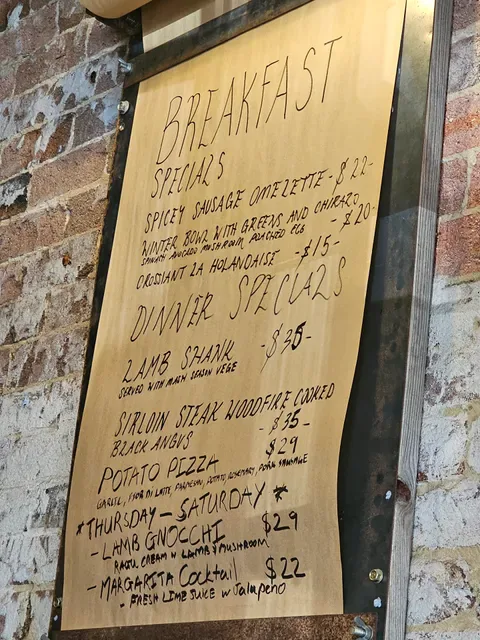 BREAKFAST
SPECIALS
SPICEY SAUSAGE OMELETTE - $22-
WINTER BOWL WITH GREENS AND CHIRAZO
SPINASH AVOCADO MUSHROOM POACHED EGG - $20-
CROSSIANT LA HOLANDAISE - $15-
DINNER SPECIALS
LAMB SHANK -$35-
SERVED WITH MASH SEASON VEGE
SIRLOIN STEAK WOODFIRE COOKED
BLACK ANGUS - $35-
POTATO PIZZA $29
GARLIC, FIOR DI LATTE, PARMESAN, POTATO, ROSEMARY, PORK SAUSAGE
*THURSDAY - SATURDAY *
- LAMB GNOCCHI $29
RAGU CREAM W LAMB & MUSHROOM
- MARGARITA Cocktail $22
- FRESH LIME JUICE w Jalapeno